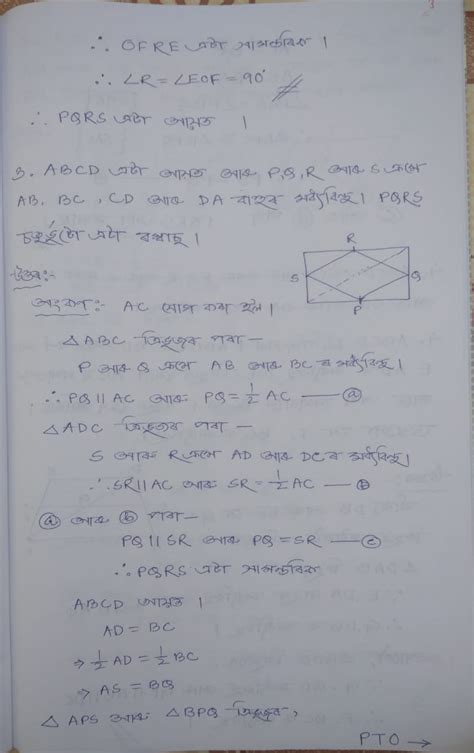 3
∴ OFRE এটা সামান্তৰিক ।
∴ ∠R = ∠EOF = 90°
∴ PQRS এটা আয়ত ।
3. ABCD এটা আয়ত আৰু P,Q,R আৰু S ক্ৰমে
AB, BC, CD আৰু DA বাহুৰ মধ্যবিন্দু। PQRS
চতুৰ্ভুজটো এটা ৰম্বাছ।
উত্তৰ:-
R
S
Q
P
অংকণ:- AC যোগ কৰা হ'ল।
△ABC ত্ৰিভুজৰ পৰা —
P আৰু Q ক্ৰমে AB আৰু BC ৰ মধ্যবিন্দু।
∴ PQ || AC আৰু PQ = 1/2 AC — ⓐ
△ADC ত্ৰিভুজৰ পৰা —
S আৰু R ক্ৰমে AD আৰু DC ৰ মধ্যবিন্দু।
∴ SR || AC আৰু SR = 1/2 AC — ⓑ
ⓐ আৰু ⓑ পৰা —
PQ || SR আৰু PQ = SR — ⓒ
∴ PQRS এটা সামান্তৰিক
ABCD আয়ত ।
AD = BC
⇒ 1/2 AD = 1/2 BC
⇒ AS = BQ
△APS আৰু △BPQ ত্ৰিভুজৰ,
PTO →